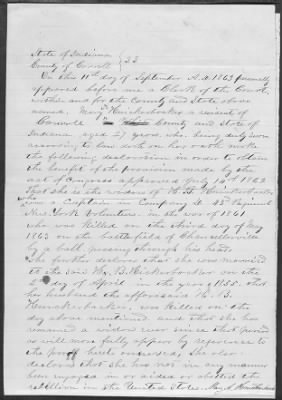 State of Indiana
County of Carroll } SS
On this 11th day of September A.D. 1863 personally
appeared before me a Clerk of the Court
within and for the County and State above
named, Mary Knickerbocker a resident of
in County and State of
Indiana aged 27 years, who, being duly sworn
according to law doth on her oath make
the following declaration in order to obtain
the benefit of the provision made by the
act of Congress approved July 14th 1862
That she is the widow of Knickerbocker,
who was a Captain in Company Regiment
New York Volunteers in the war of 1861
who was killed on the third day of May
1863 on the battlefield of Chancellorsville
by a ball passing through his head.
She further declares that she was married
to the said Wm. B. Knickerbocker on the
2nd day of April in the year 1855, that
her husband the aforesaid B.
Knickerbocker, was killed on the
day above mentioned and that she has
remained a widow ever since that period
as will more fully appear by reference to
the proof hereto annexed. She also
declares that she has not in any manner
been engaged in or aided or abetted the
rebellion in the United States. Mary Knickerbocker